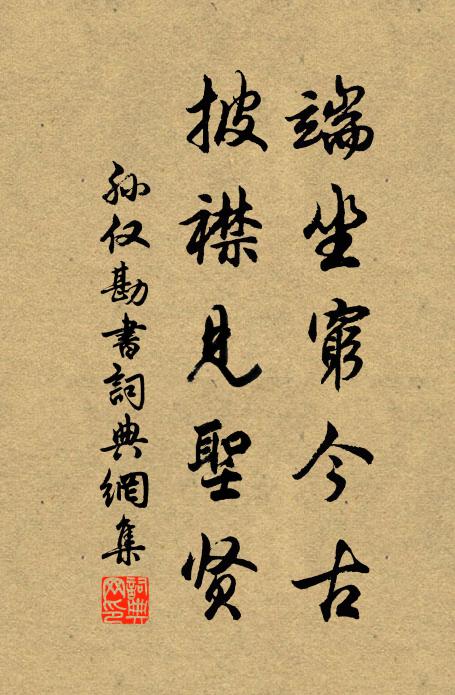 端坐窮今古
披襟見聖贤
孙仅勘書詞典網集
詞典网印